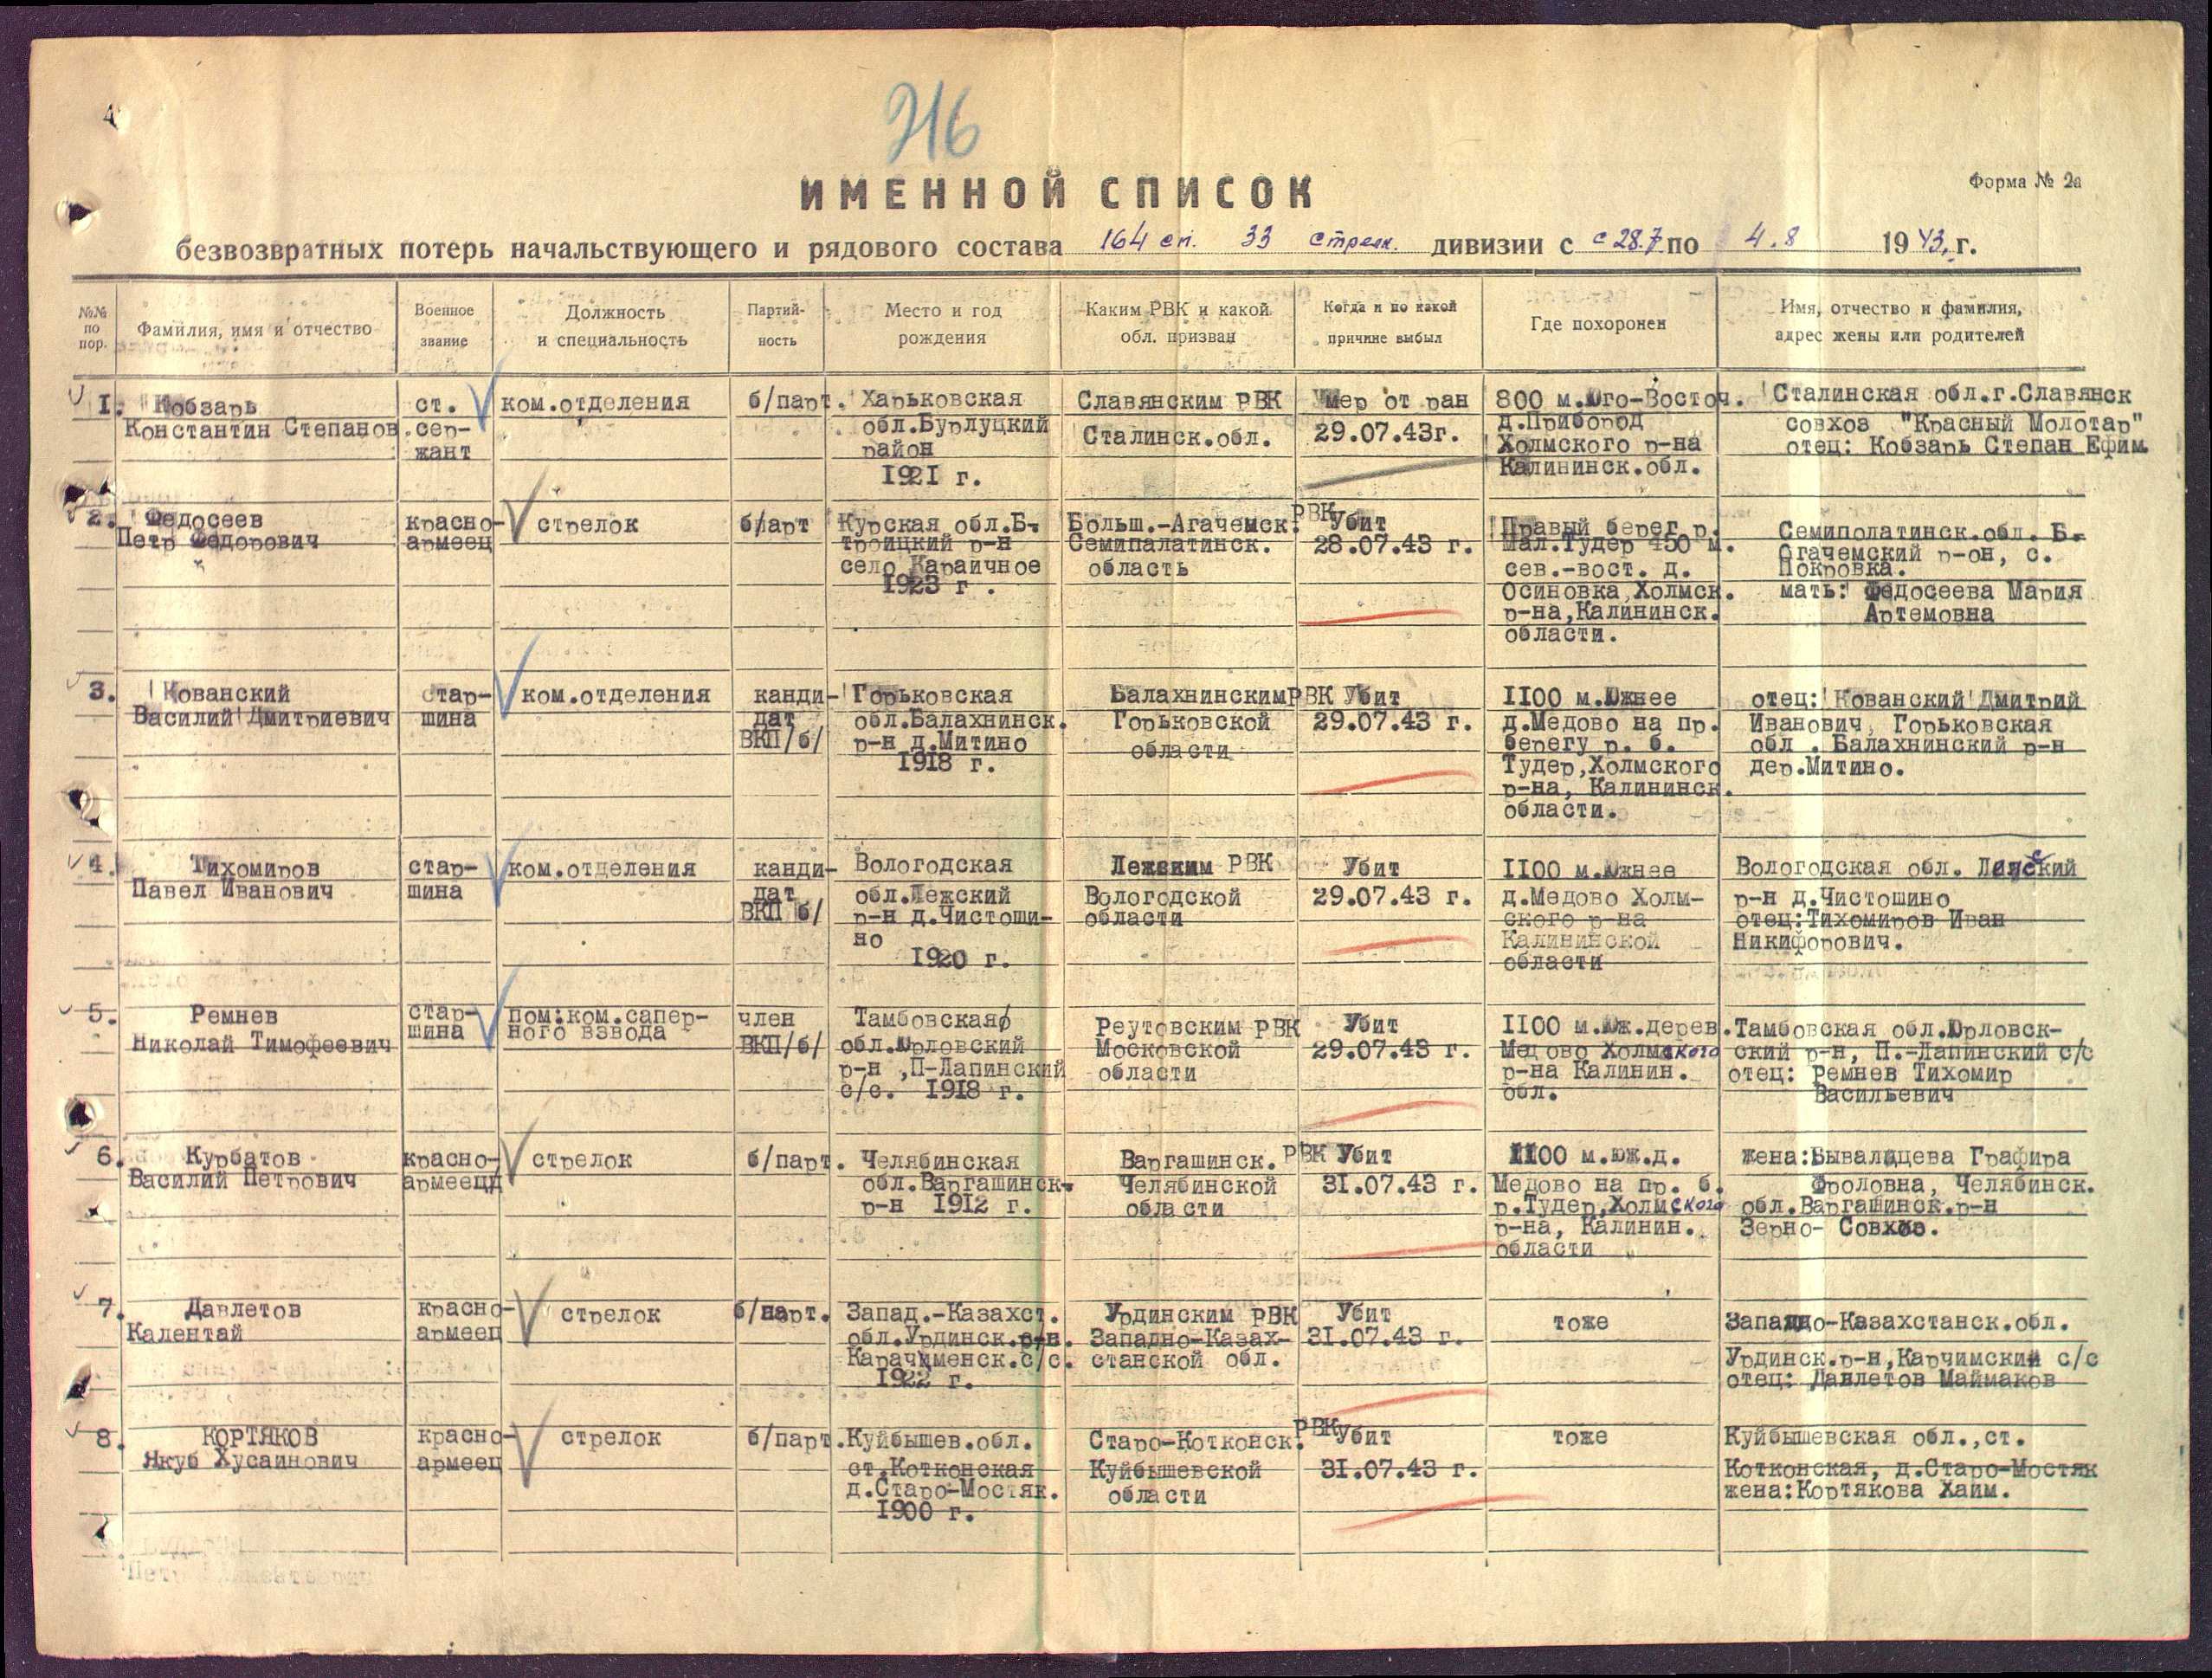 4
216
ИМЕННОЙ СПИСОК
Форма № 2а
безвозвратных потерь начальствующего и рядового состава 164 сп. 33 стрелк. дивизии с с 28.7 по 4.8 1943 г.
№№ по пор.
Фамилия, имя и отчество
Военное звание
Должность и специальность
Партий-ность
Место и год рождения
Каким РВК и какой обл. призван
Когда и по какой причине выбыл
Где похоронен
Имя, отчество и фамилия, адрес жены или родителей
1. Кобзарь
Константин Степанов.
ст.
сер-
жант
ком.отделения
б/парт.
Харьковская
обл.Бурлуцкий
район
1921 г.
Славянским РВК
Сталинск.обл.
Умер от ран
29.07.43г.
800 м.Юго-Восточ.
д.Прибород
Холмского р-на
Калининск.обл.
Сталинская обл.г.Славянск
совхоз "Красный Молотар"
отец: Кобзарь Степан Ефим.
2. Федосеев
Петр Федорович
красно-
армеец
стрелок
б/парт
Курская обл.Б-
троицкий р-н
село Караичное
1923 г.
Больш.-Агачемск. РВК
Семипалатинск.
область
Убит
28.07.43 г.
Правый берег р.
Мал.Тудер 450 м.
сев.-вост. д.
Осиновка,Холмск.
р-на,Калининск.
области.
Семиполатинск.обл. Б-
Агачемский р-он, с.
Покровка.
мать: Федосеева Мария
Артемовна
3. Кованский
Василий Дмитриевич
стар-
шина
ком.отделения
канди-
дат
ВКП/б/
Горьковская
обл.Балахнинск.
р-н д.Митино
1918 г.
Балахнинским РВК
Горьковской
области
Убит
29.07.43 г.
1100 м.Южнее
д.Медово на пр.
берегу р. б.
Тудер,Холмского
р-на, Калининск.
области.
отец: Кованский Дмитрий
Иванович, Горьковская
обл. Балахнинский р-н
дер.Митино.
4. Тихомиров
Павел Иванович
стар-
шина
ком.отделения
канди-
дат
ВКП б/
Вологодская
обл.Лежский
р-н д.Чистоши-
но
1920 г.
Лежским РВК
Вологодской
области
Убит
29.07.43 г.
1100 м.Южнее
д.Медово Холм-
ского р-на
Калининской
области
Вологодская обл.
р-н д.Чистошино
отец:Тихомиров Иван
Никифорович.
5. Ремнев
Николай Тимофеевич
стар-
шина
пом.ком.сапер-
ного взвода
член
ВКП/б/
Тамбовская
обл.Юрловский
р-н ,П-Лапинский
с/с. 1918 г.
Реутовским РВК
Московской
области
Убит
29.07.43 г.
1100 м.Юж.дерев.
Медово Холмского
р-на Калинин.
обл.
Тамбовская обл.Юрловск-
ский р-н, П.-Лапинский с/с
отец: Ремнев Тихомир
Васильевич
6. Курбатов
Василий Петрович
красно-
армеецд
стрелок
б/парт.
Челябинская
обл.Варгашинск.
р-н 1912 г.
Варгашинск. РВК
Челябинской
области
Убит
31.07.43 г.
1100 м.юж.д.
Медово на пр. б.
р.Тудер,Холмского
р-на, Калинин.
области
жена:Бывалдцева Графира
Фроловна, Челябинск.
обл.Варгашинск.р-н
Зерно- Совхоз.
7. Давлетов
Калентай
красно-
армеец
стрелок
б/парт.
Запад.-Казахст.
обл.Урдинск.р-н.
Карачименск.с/с.
1922 г.
Урдинским РВК
Западно-Казах-
станской обл.
Убит
31.07.43 г.
тоже
Западно-Казахстанск.обл.
Урдинск.р-н,Карчимский с/с
отец: Давлетов Маймаков
8. КОРТЯКОВ
Якуб Хусаинович
красно-
армеец
стрелок
б/парт.
Куйбышев.обл.
ст.Котконская
д.Старо-Мостяк.
1900 г.
Старо-Котконск. РВК
Куйбышевской
области
Убит
31.07.43 г.
тоже
Куйбышевская обл.,ст.
Котконская, д.Старо-Мостяк
жена:Кортякова Хаим.